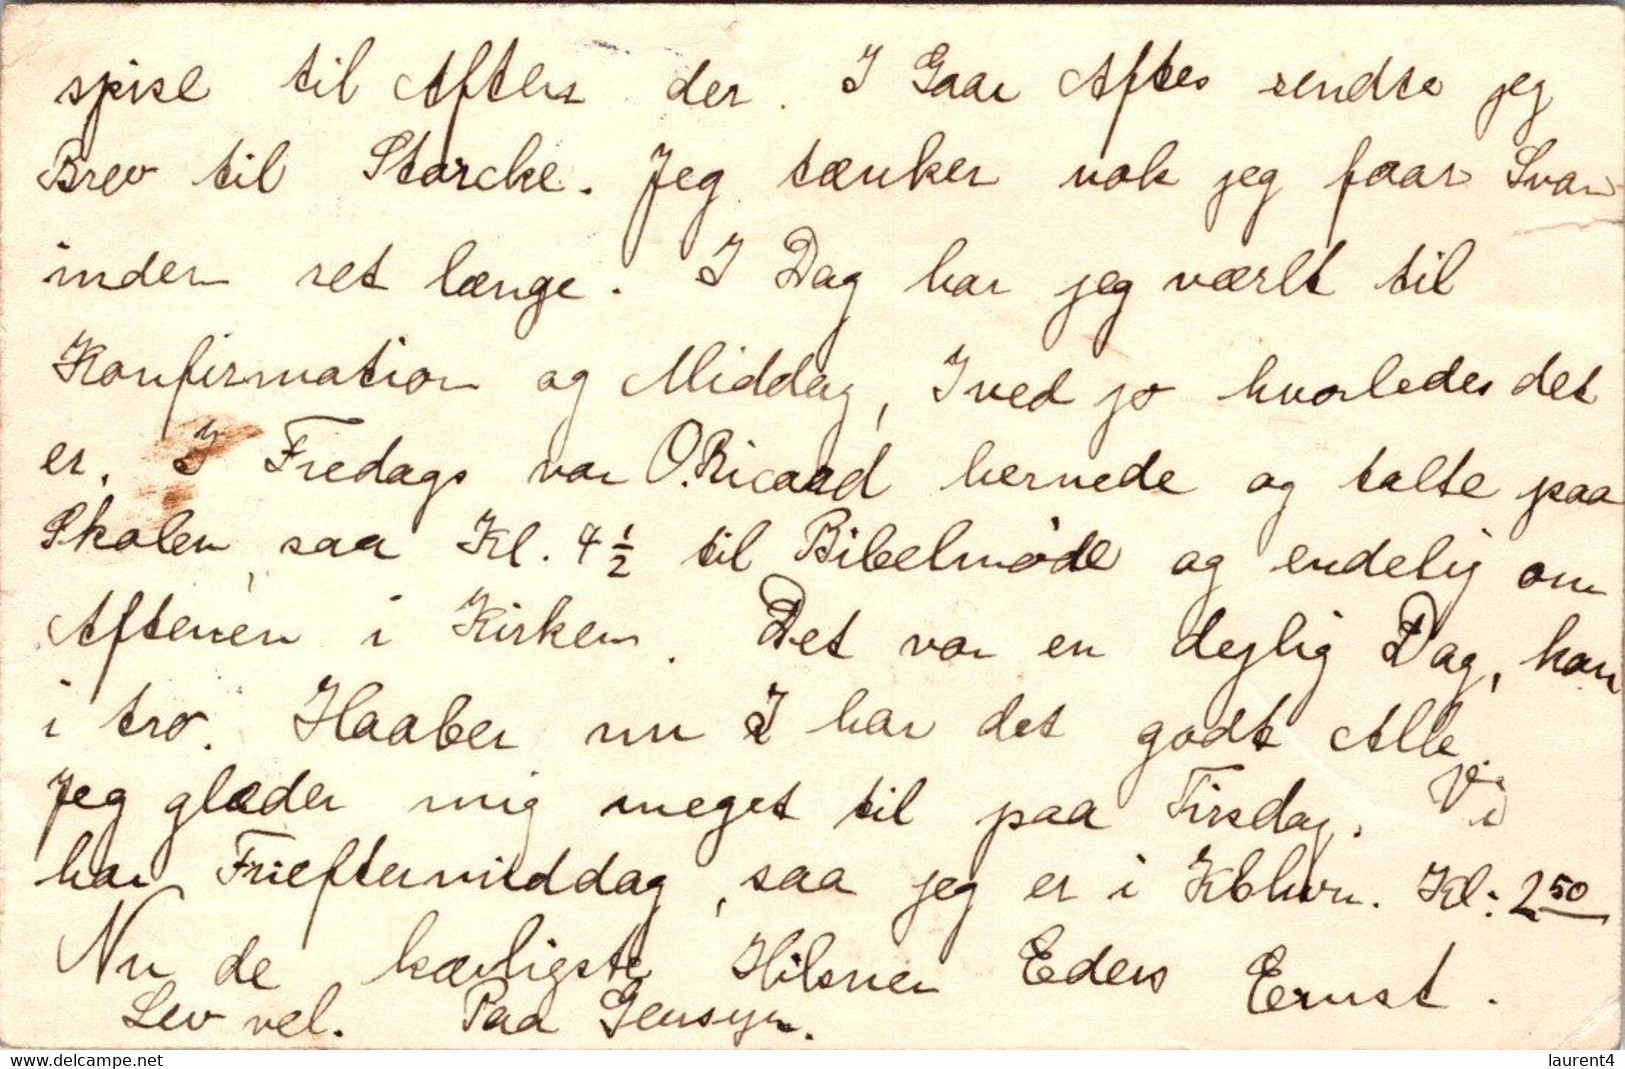 spise til Aften der. I Gaar Aftes sendte jeg
Brev til Starcke. Jeg tænker nok jeg faar Svar
inden ret længe. I Dag har jeg værlt til
Konfirmation og Middag, I ved jo hvorledes det
er. I Fredags var O. Ricard hernede og talte paa
Skolen, saa Kl. 4 1/2 til Bibelmøde og endelig om
Aftenen i Kirken. Det var en dejlig Dag, kan
i tro. Haaber nu I har det godt Alle.
Jeg glæder mig meget til paa Tirsdag. Vi
har Frieftermiddag, saa jeg er i Kbhvn. Kl: 2 50
Nu de kærligste Hilsner Eders Ernst.
Lev vel. Paa Gensyn.
www.delcampe.net
laurent4